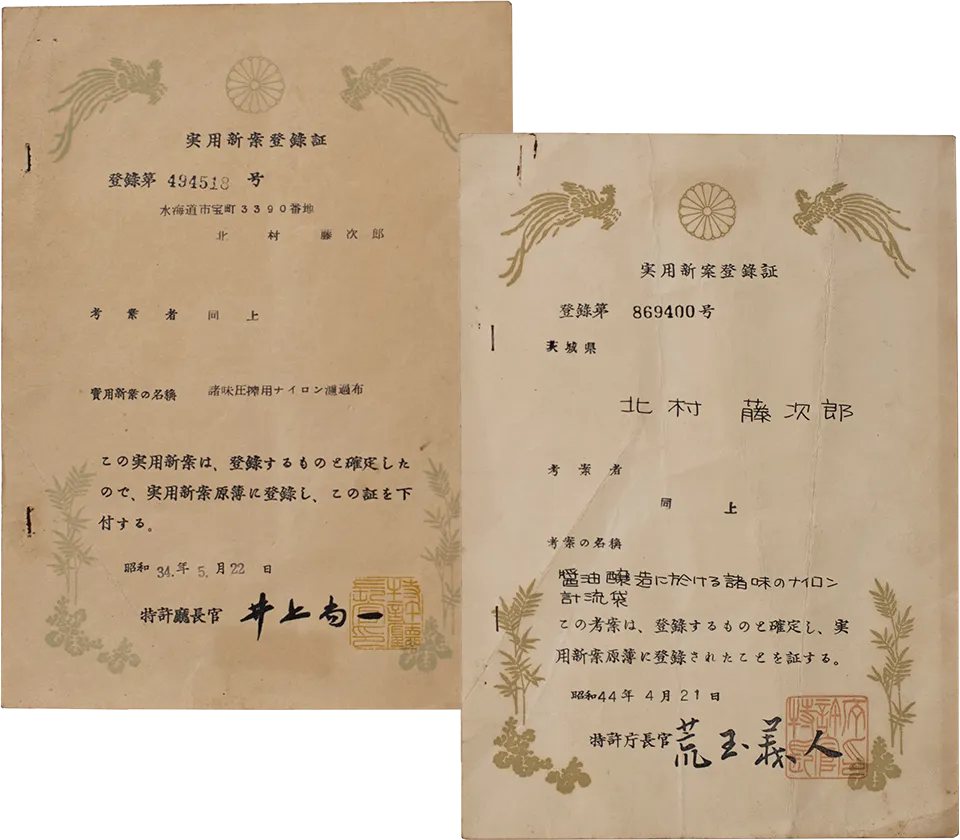 実用新案登錄証
登錄第 494518 号
水海道市宝町3390番地
北村 藤次郎
考案者 同上
實用新案の名稱 諸味圧搾用ナイロン濾過布
この実用新案は、登錄するものと確定した
ので、実用新案原簿に登錄し、この証を下
付する。
昭和 34.年 5.月 22 日
特許廳長官 井上尚一
実用新案登錄証
登錄第 869400号
茨城県
北村 藤次郎
考案者
同上
考案の名稱
醬油醸造に於ける諸味のナイロン
計流袋
この考案は、登錄するものと確定し、実
用新案原簿に登錄されたことを証する。
昭和44年 4月21日
特許庁長官 荒玉義人